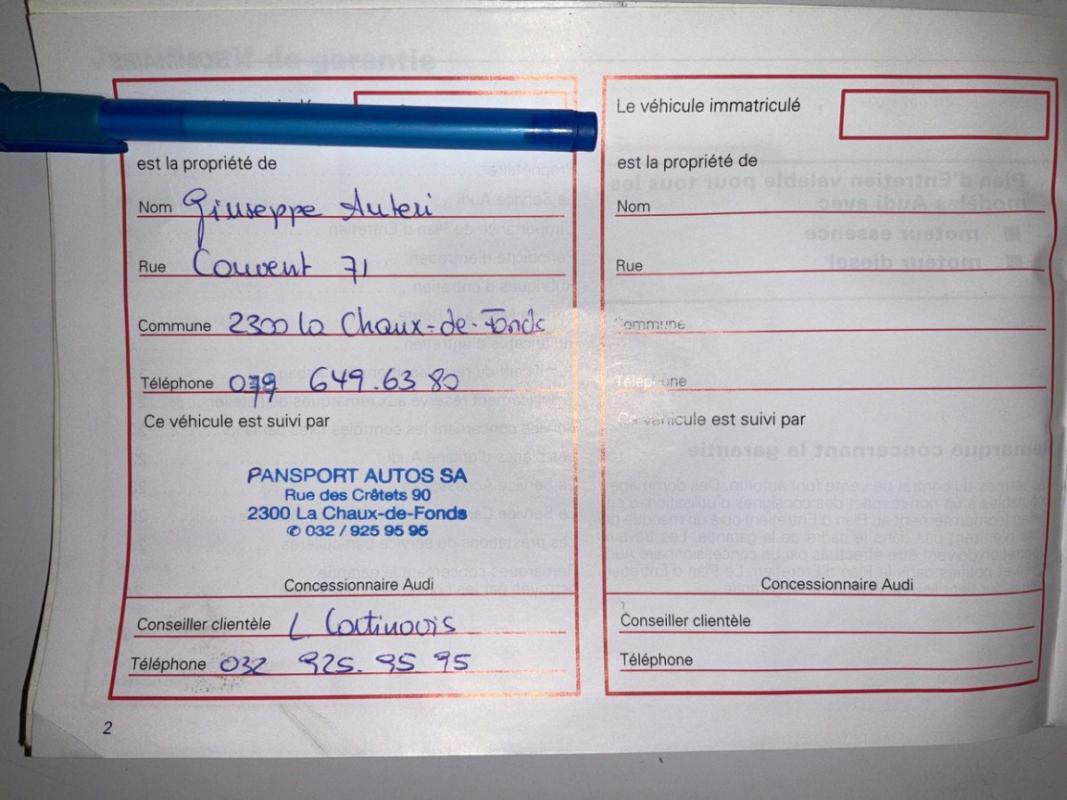 est la propriété de
Nom Giuseppe Auteri
Rue Couvent 71
Commune 2300 La Chaux-de-Fonds
Téléphone 079 649.63 80
Ce véhicule est suivi par
PANSPORT AUTOS SA
Rue des Crêtets 90
2300 La Chaux-de-Fonds
✆ 032 / 925 95 95
Concessionnaire Audi
Conseiller clientèle L. Cortinovis
Téléphone 032 925. 95 95
2
Le véhicule immatriculé
est la propriété de
Nom
Rue
Commune
Téléphone
Ce véhicule est suivi par
Concessionnaire Audi
Conseiller clientèle
Téléphone